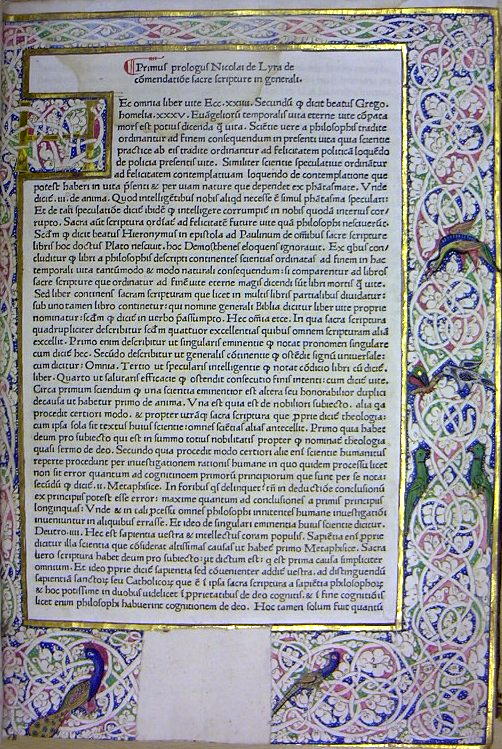 Primus prologus Nicolai de Lyra de
cōmendatiōe sacre scripture in generali.
HEc omnia liber uite Ecc.xxiiii. Secundū ꝙ dicit beatus Grego.
homelia.xxxv. Euāgelioꝝ temporalis uita eterne uite cōpata
mors est potius dicenda ꝙ̄ uita. Sciētie uero a philosophis tradite
ordinantur ad finem consequendum in presenti uita quia scientie
practice ab eis tradite ordinantur ad felicitatem politicā loquēdo
de politia presentis uite. Similiter scientie speculatiue ordināt᷑
ad felicitatem contemplatiuam loquendo de contemplatione que
potest haberi in uita p̄senti & per uiam nature que dependet ex phātasmate. Vnde
dicit᷑.iii.de anima. Quod intelligētibus nobis aliqd necesse ē simul phātasma speculari:
Et de tali speculatiōe dicit᷑ ibidē ꝙ intelligere corrumpit᷑ in nobis quodā interius cor/
rupto. Sacra aūt scriptura ordīat᷑ ad felicitatē future uite quā philosophi nescieruēt.
Scdm ꝙ dicit beatus Hieronymus in epistola ad Paulinum de oīnibus sacre scripture
libris hoc doctus Plato nesciuit. hoc Demosthenes eloquens ignorauit. Ex qbus con/
cludit᷑ ꝙ libri a philosophis descripti continentes sciētias ordinatas ad finem in hac
temporali uita tantūmodo & modo naturali consequendum: si comparentur ad libros
sacre scripture que ordinatur ad finē uite eterne magis dicendi sūt libri mortis ꝙ̄ uite.
Sed liber continens sacram scripturam que licet in multis libris partialibus diuidatur:
sub uno tamen libro continetur: qui nomine generali Biblia dicitur liber uite proprie
nominatur: scdm ꝙ dicit᷑ in uerbo p̄assumpto. Hec omnia etce. In qua sacra scriptura
quadrupliciter describitur scdm quattuor excellentias quibus omnem scripturam aliā
excellit. Primo enim describitur ut singularis eminentie ꝙ notat pronomen singulare
cum dicit᷑ hec. Secūdo describitur ut generalis cōtinentie ꝙ ostēdit signū uniuersale:
cum dicitur: Omnia. Tertio ut specularis intelligentie ꝙ notat cōdicio libri cū dicit᷑.
liber. Quarto ut salutaris efficatie ꝙ ostendit consecutio finis intenti: cum dicit᷑ uite.
Circa primum sciendum ꝙ una scientia eminentior est altera seu honorabilior duplici
de causa ut habetur primo de anima. Vna est quia est de nobiliori subiecto. alia qa
procedit certiori modo. & propter utrāq; sacra scriptura que p̄prie dicit᷑ theologia:
cum ipsa sola sit textus huius sciētie: omnes sciētias alias antecellit. Primo quia habet
deum pro subiecto qui est in summo totius nobilitatis propter ꝙ nominat᷑ theologia
quasi sermo de deo. Secundo quia procedit modo certiori alie enī scientie humanitus
reperte procedunt per inuestigationem rationis humane in quo quidem processu licet
non sit error quantum ad cognitionem primorū principiorum que sunt per se nota:
secūdū ꝙ dicit᷑.ii.Metaphisice. In foribus qs delinquet: tn̄ in deductiōe conclusionū
ex principiis potest esse error: maxime quantum ad conclusiones a primis principiis
longinquas: Vnde & in tali p̄cessu omnes philosophi innitentes humane inuestigatiōi
inueniuntur in aliquibus errasse. Et ideo de singulari eminentia huius scientie dicitur.
Deutro.iiii. Hec est sapientia uestra & intellectus coram populis. Sapientia eni p̄prie
dicitur illa scientia que cōsiderat altissimas causas ut habet᷑ primo Metaphisice. Sacra
uero scriptura habet deum pro subiecto: ut dictum est: ꝙ est prima causa simpliciter
omnium. Et ideo p̄prie dicit᷑ sapientia sed cōuenienter addit᷑ uestra. ad distinguendū
sapientiā sanctoꝝ seu Catholicoꝝ que ē ī ipsa sacra scriptura a sapiētia philosophoꝝ
& hoc potissime in duobus uidelicet ī p̄prietatibus de deo cognitis. & ī fine cognitiōis
licet enim philosophi habuerint cognitionem de deo. Hoc tamen solum fuit quantū